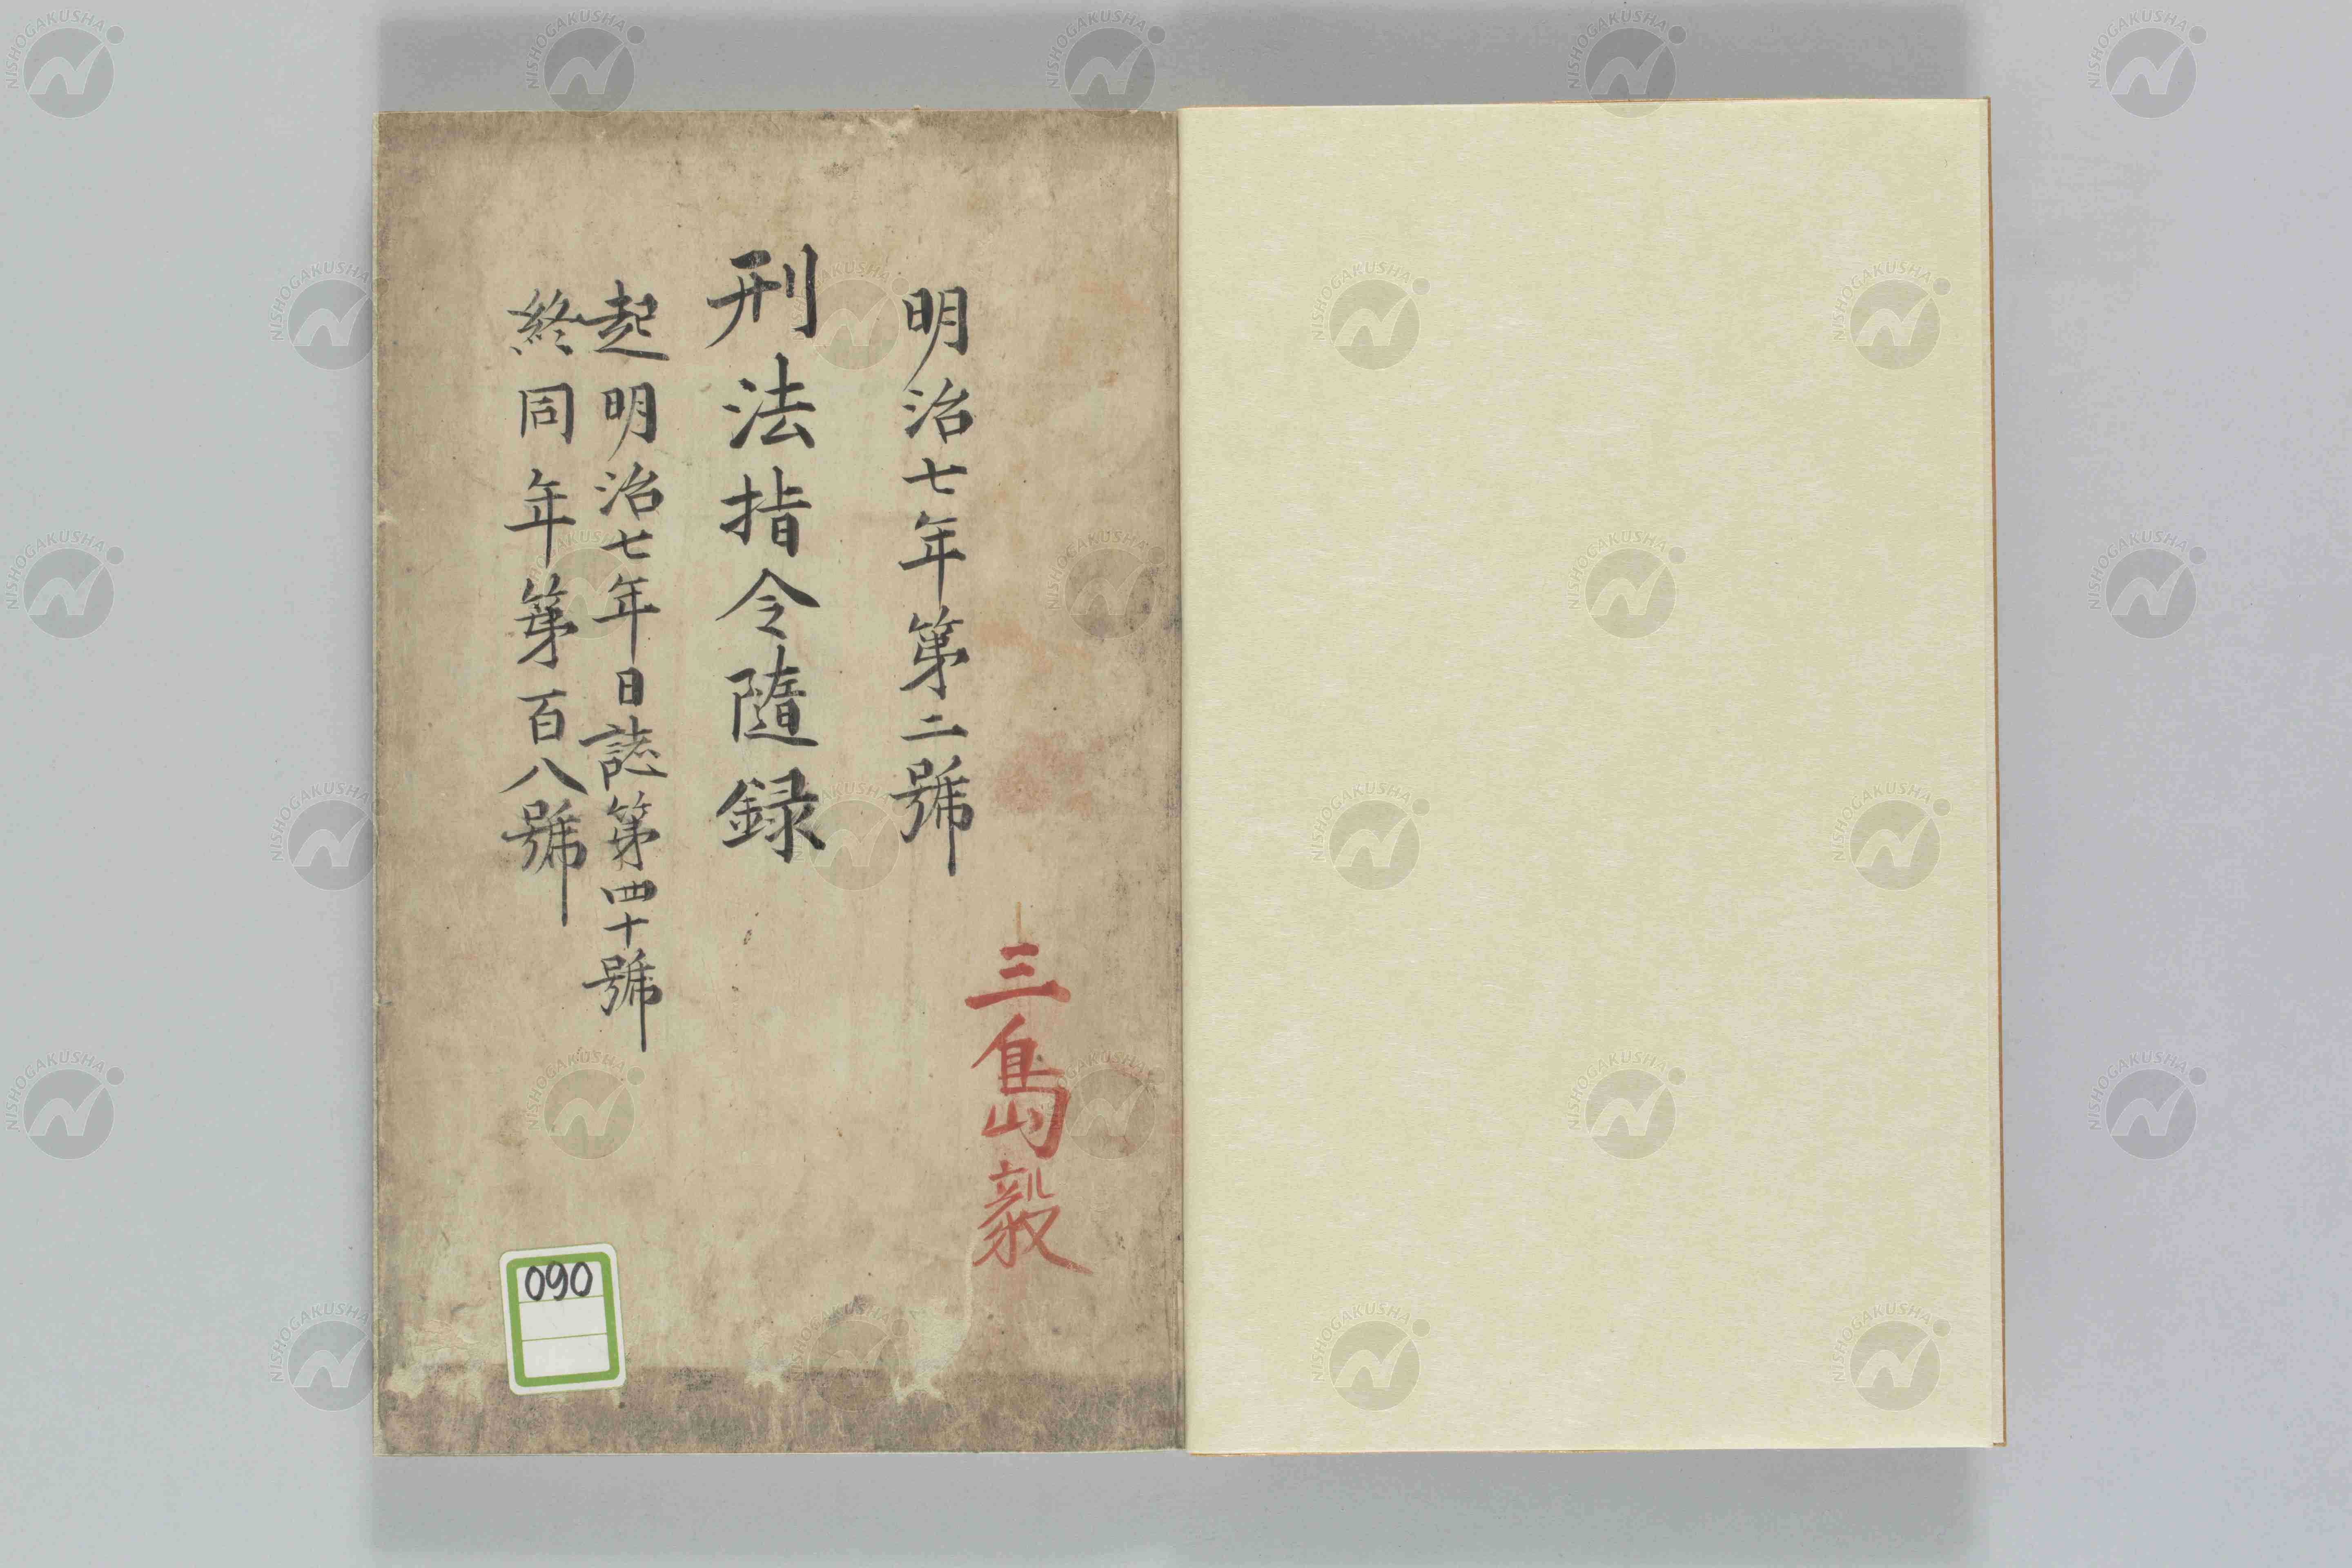 三島毅
明治七年第二號
刑法指令隨録
起明治七年日誌第四十號
終同年第百八號
090
NISHOGAKUSHA